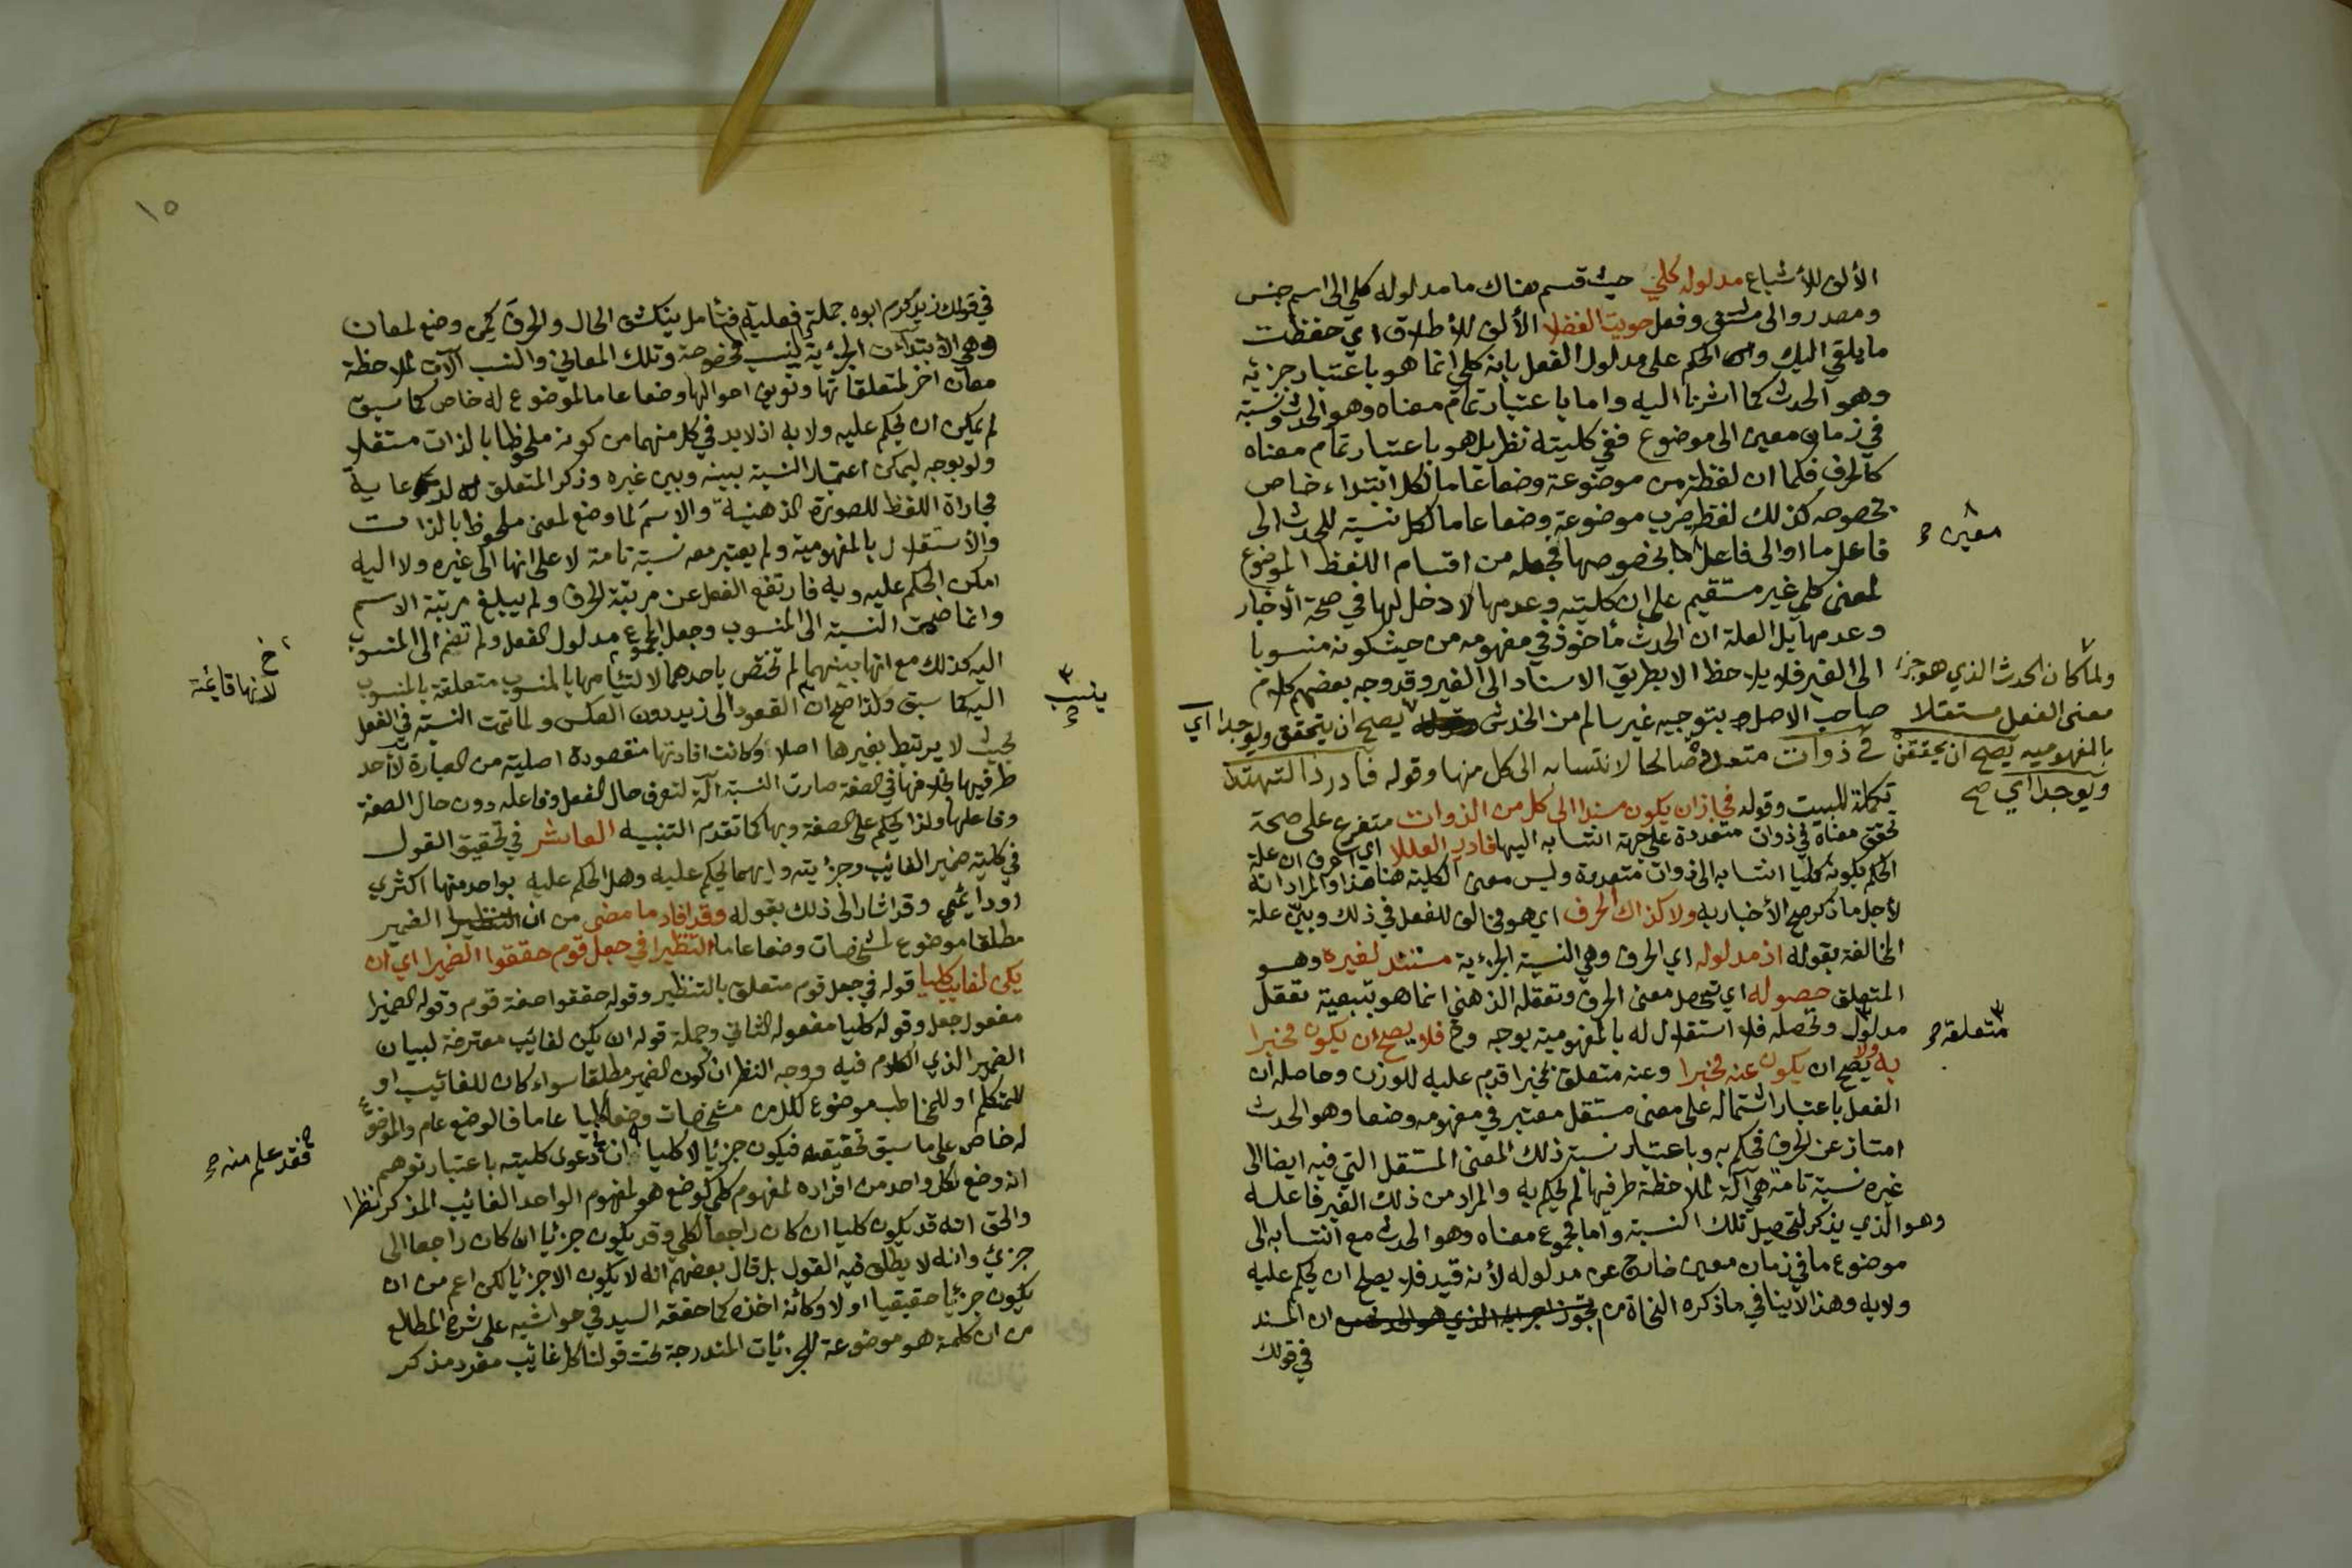 الألف للأشباع مدلوله كلي حيث قسم هناك ما مدلوله كلي الى اسم جنس
ومصدر والى مشتق وفعل حويت الفضلا الألف للأطلاق اي حفظت
ما يلقى اليك والحكم على مدلول الفعل بانه كلي انما هو باعتبار جزئه
وهو الحدث كما اشرنا اليه واما باعتبار تمام معناه وهو الحدث ونسبة
في زمان معين الى موضوع ففي كليته نظر بل هو باعتبار تمام معناه
كالحرف فكما ان لفظة من موضوعة وضعا عاما لكل ابتداء خاص
بخصوصه كذلك لفظ ضرب موضوعة وضعا عاما لكل نسبة للحدث الى
فاعل ما او الى فاعل بخصوصها فجعله من اقسام اللفظ الموضوع
معين صح
لمعنى كلي غير مستقيم على ان كليته وعدمها لا دخل لها في صحة الأخبار
وعدمها بل العلة ان الحدث مأخوذ في مفهومه من حيث كونه منسوبا
الى الغير فلا يلاحظ الا بطريق الاسناد الى الغير وقد وجه بعضهم كلام
صاحب الاصل بتوجيه غير سالم من الخدش يصح ان يتحقق ويوجدا اي
ولما كان الحدث الذي هو جزء
معنى الفعل مستقلا
بالمفهوميه يصح ان يحققن
ويوجدا اي صح
في ذوات متعددة صالحا لانتسابه الى كل منها وقوله فادر ذا التهتدا
تكملة للبيت وقوله فجاز ان يكون مسندا الى كل من الذوات متفرع على صحة
تحقق معناه في ذوات متعددة على جهة انتسابه اليها فادر العللا اي اعرف ان علة
الحكم بكونه كليا انتسابه الى ذوات متعددة وليس معنى الكلية هنا هذا والمراد انه
لأجل ما ذكر صح الأخبار به ولا كذاك الحرف اي هو مخالف للفعل في ذلك وبين علة
المخالفة بقوله اذ مدلوله اي الحرف وهي النسبة الجزئية مستند لغيره وهو
المتعلق حصوله اي تحصل معنى الحرف وتعقله الذهني انما هو بتبعية تعقل
مدلول وتحصله فلا استقلال له بالمفهومية بوجه وح فلا يصح ان يكون مخبرا
متعلقه صح
به ولا يصح ان يكون عنه مخبرا وعنه متعلق بمخبرا قدم عليه للوزن وحاصله ان
الفعل باعتبار اشتماله على معنى مستقل معتبر في مفهومه وضعا وهو الحدث
امتاز عن الحرف فحكم به وباعتبار نسبة ذلك المعنى المستقل التي فيه ايضا الى
غيره نسبة تامة هي آلة لملاحظة طرفيها لم يحكم به والمراد من ذلك الغير فاعله
وهو الذي يذكر لتحصيل تلك النسبة واما مجموع معناه وهو الحدث مع انتسابه الى
موضوع ما في زمان معين خارج عن مدلوله لأنه قيد فلا يصلح ان يحكم عليه
ولا به وهذا لا ينافي ما ذكره النحاة من ان المسند
في قولك
١٥
في قولك زيد كرم ابوه جملة فعليه فتأمل ينكشف الحال والحرف كمن وضع لمعان
وهي الابتداءت الجزئية لنسب مخصوصة وتلك المعاني والنسب آلآت لملاحظة
معان اخر لمتعلقاتها وتعرف احوالها وضعا عاما لموضوع له خاص كما سبق
لم يمكن ان يحكم عليه ولا به اذ لا بد في كل منهما من كونه ملحوظا بالذات مستقلا
ولو بوجه ليمكن اعتبار النسبة بينه وبين غيره وذكر المتعلق له لرعاية
محاراة اللفظ للصورة الذهنية والاسم لما وضع لمعنى ملحوظ بالذات
والأستقلال بالمفهومية ولم يعتبر معه نسبة تامة لا على انها الى غيره ولا اليه
امكن الحكم عليه وبه فارتفع الفعل عن مرتبة الحرف ولم يبلغ مرتبة الاسم
وانما ضمت النسبة الى المنسوب وجعل المجموع مدلول الفعل ولم تضم الى المنسوب
اليه كذلك مع انها بينهما لم تختص باحدهما لالتيامها بالمنسوب متعلقة بالمنسوب
خ
لأنها قايمة
اليه كما سبق ولذا صح ان القعود الى زيد دون العكس ولما تمت النسبة في الفعل
ينسب
صح
بحيث لا يرتبط بغيرها اصلا وكانت افادتها مقصودة اصلية من العبارة لا احد
طرفيها بخلافها في الصفة صارت النسبة آلة لتعرف حال الفعل وفاعله دون حال الصفة
وفاعلها ولذا يحكم على الصفة وبها كما تقدم التنبيه العاشر في تحقيق القول
في كلية ضمير الغائب وجزئيته وايهما يحكم عليه وهل الحكم عليه بواحد منها اكثري
او دائمي وقد اشار الى ذلك بقوله وقد افاد ما مضى من ان الضمير
مطلقا موضوع لمشخصات وضعا عاما التنظيرا في جعل قوم حققوا الضميرا اي ان
يكن لغايب كليا قوله في جعل قوم متعلق بالتنظير وقوله حققوا صفة قوم وقوله الضميرا
مفعول جعل وقوله كليا مفعوله الثاني وجملة قوله ان يكن لغايب معترضة لبيان
الضمير الذي الكلام فيه ووجه النظر ان كون الضمير مطلقا سواء كان للغائب او
للمتكلم او للمخاطب موضوع لكل من مشخصات وضعا كليا عاما فالوضع عام والموضوع
له خاص على ما سبق تحقيقه فيكون جزئيا لا كليا ان دعوى كليته باعتبار توهم
فقد علم منه صح
انه وضع لكل واحد من افراده لمفهوم كلي كوضع هو لمفهوم الواحد الغائب المذكر نظرا
والحق انه قد يكون كليا ان كان راجعا لكلي وقد يكون جزئيا ان كان راجعا الى
جزئ وانه لا يطلق فيه القول بل قال بعضهم انه لا يكون الا جزئيا لكن اعم من ان
يكون جزئيا حقيقيا او لا وكأنه اخذه كما حققه السيد في حواشيه على شرح المطالع
من ان كلمة هو موضوعة للجزئيات المندرجة تحت قولنا كل غائب مفرد مذكر